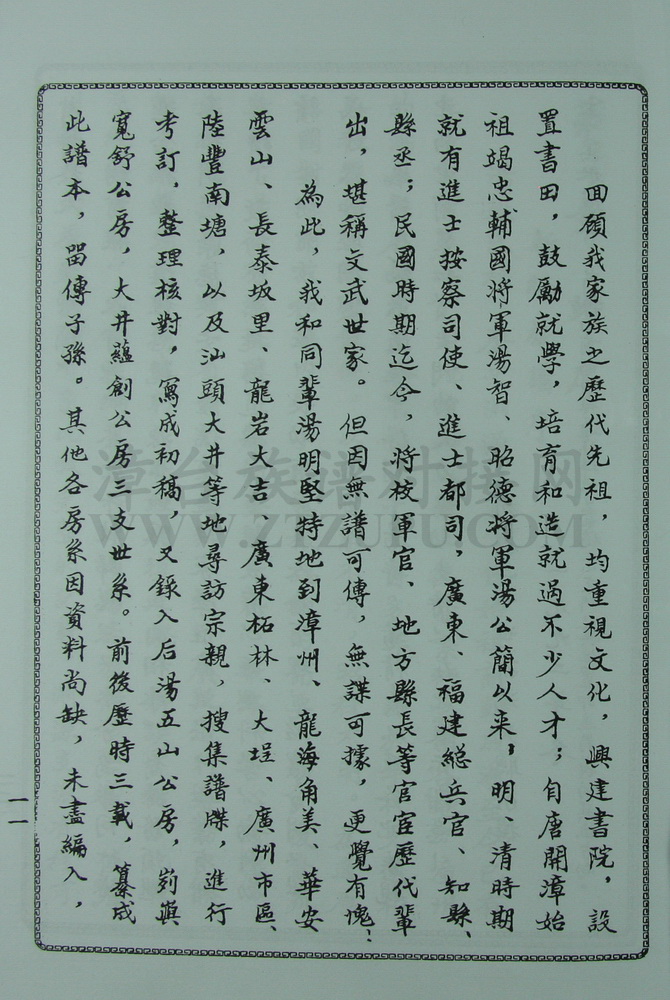 回顧我家族之歷代先祖，均重視文化，興建書院，設
置書田，鼓勵就學，培育和造就過不少人才；自唐開漳始
祖竭忠輔國將軍湯智、昭德將軍湯公簡以來，明、清時期
就有進士按察司使、進士都司，廣東、福建總兵官、知縣、
縣丞；民國時期迄今，將校軍官、地方縣長等官宦歷代輩
出，堪稱文武世家。但因無譜可傳，無諜可據，更覺有愧：
為此，我和同輩湯明堅特地到漳州、龍海角美、華安
雲山、長泰坂里、龍岩大吉、廣東柘林、大埕、廣州市區、
陸豐南塘，以及汕頭大井等地尋訪宗親，搜集譜牒，進行
考訂，整理核對，寫成初稿，又錄入后湯五山公房，
寬舒公房，大井蘊創公房三支世系。前後歷時三載，纂成
此譜本，留傳子孫。其他各房系因資料尚缺，未盡編入，
一一
漳台族譜对接网
WWW.ZTZUPU.COM